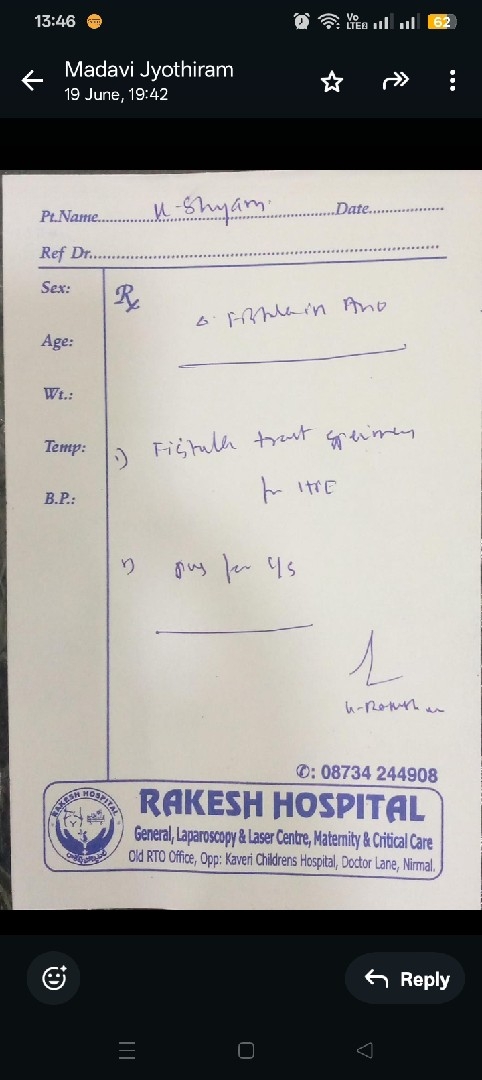 13:46
Vo LTE2
62
Madavi Jyothiram
19 June, 19:42
Pt.Name.......... K. Shyam. ..........Date..........
Ref Dr..........
Sex:
Rx
Δ. Fistula in Ano
Age:
Wt.:
Temp:
1) Fistula tract specimen
for HPE
B.P.:
2) pus for c/s
✆: 08734 244908
RAKESH HOSPITAL
RAKESH HOSPITAL
General, Laparoscopy & Laser Centre, Maternity & Critical Care
Old RTO Office, Opp: Kaveri Childrens Hospital, Doctor Lane, Nirmal.
Reply